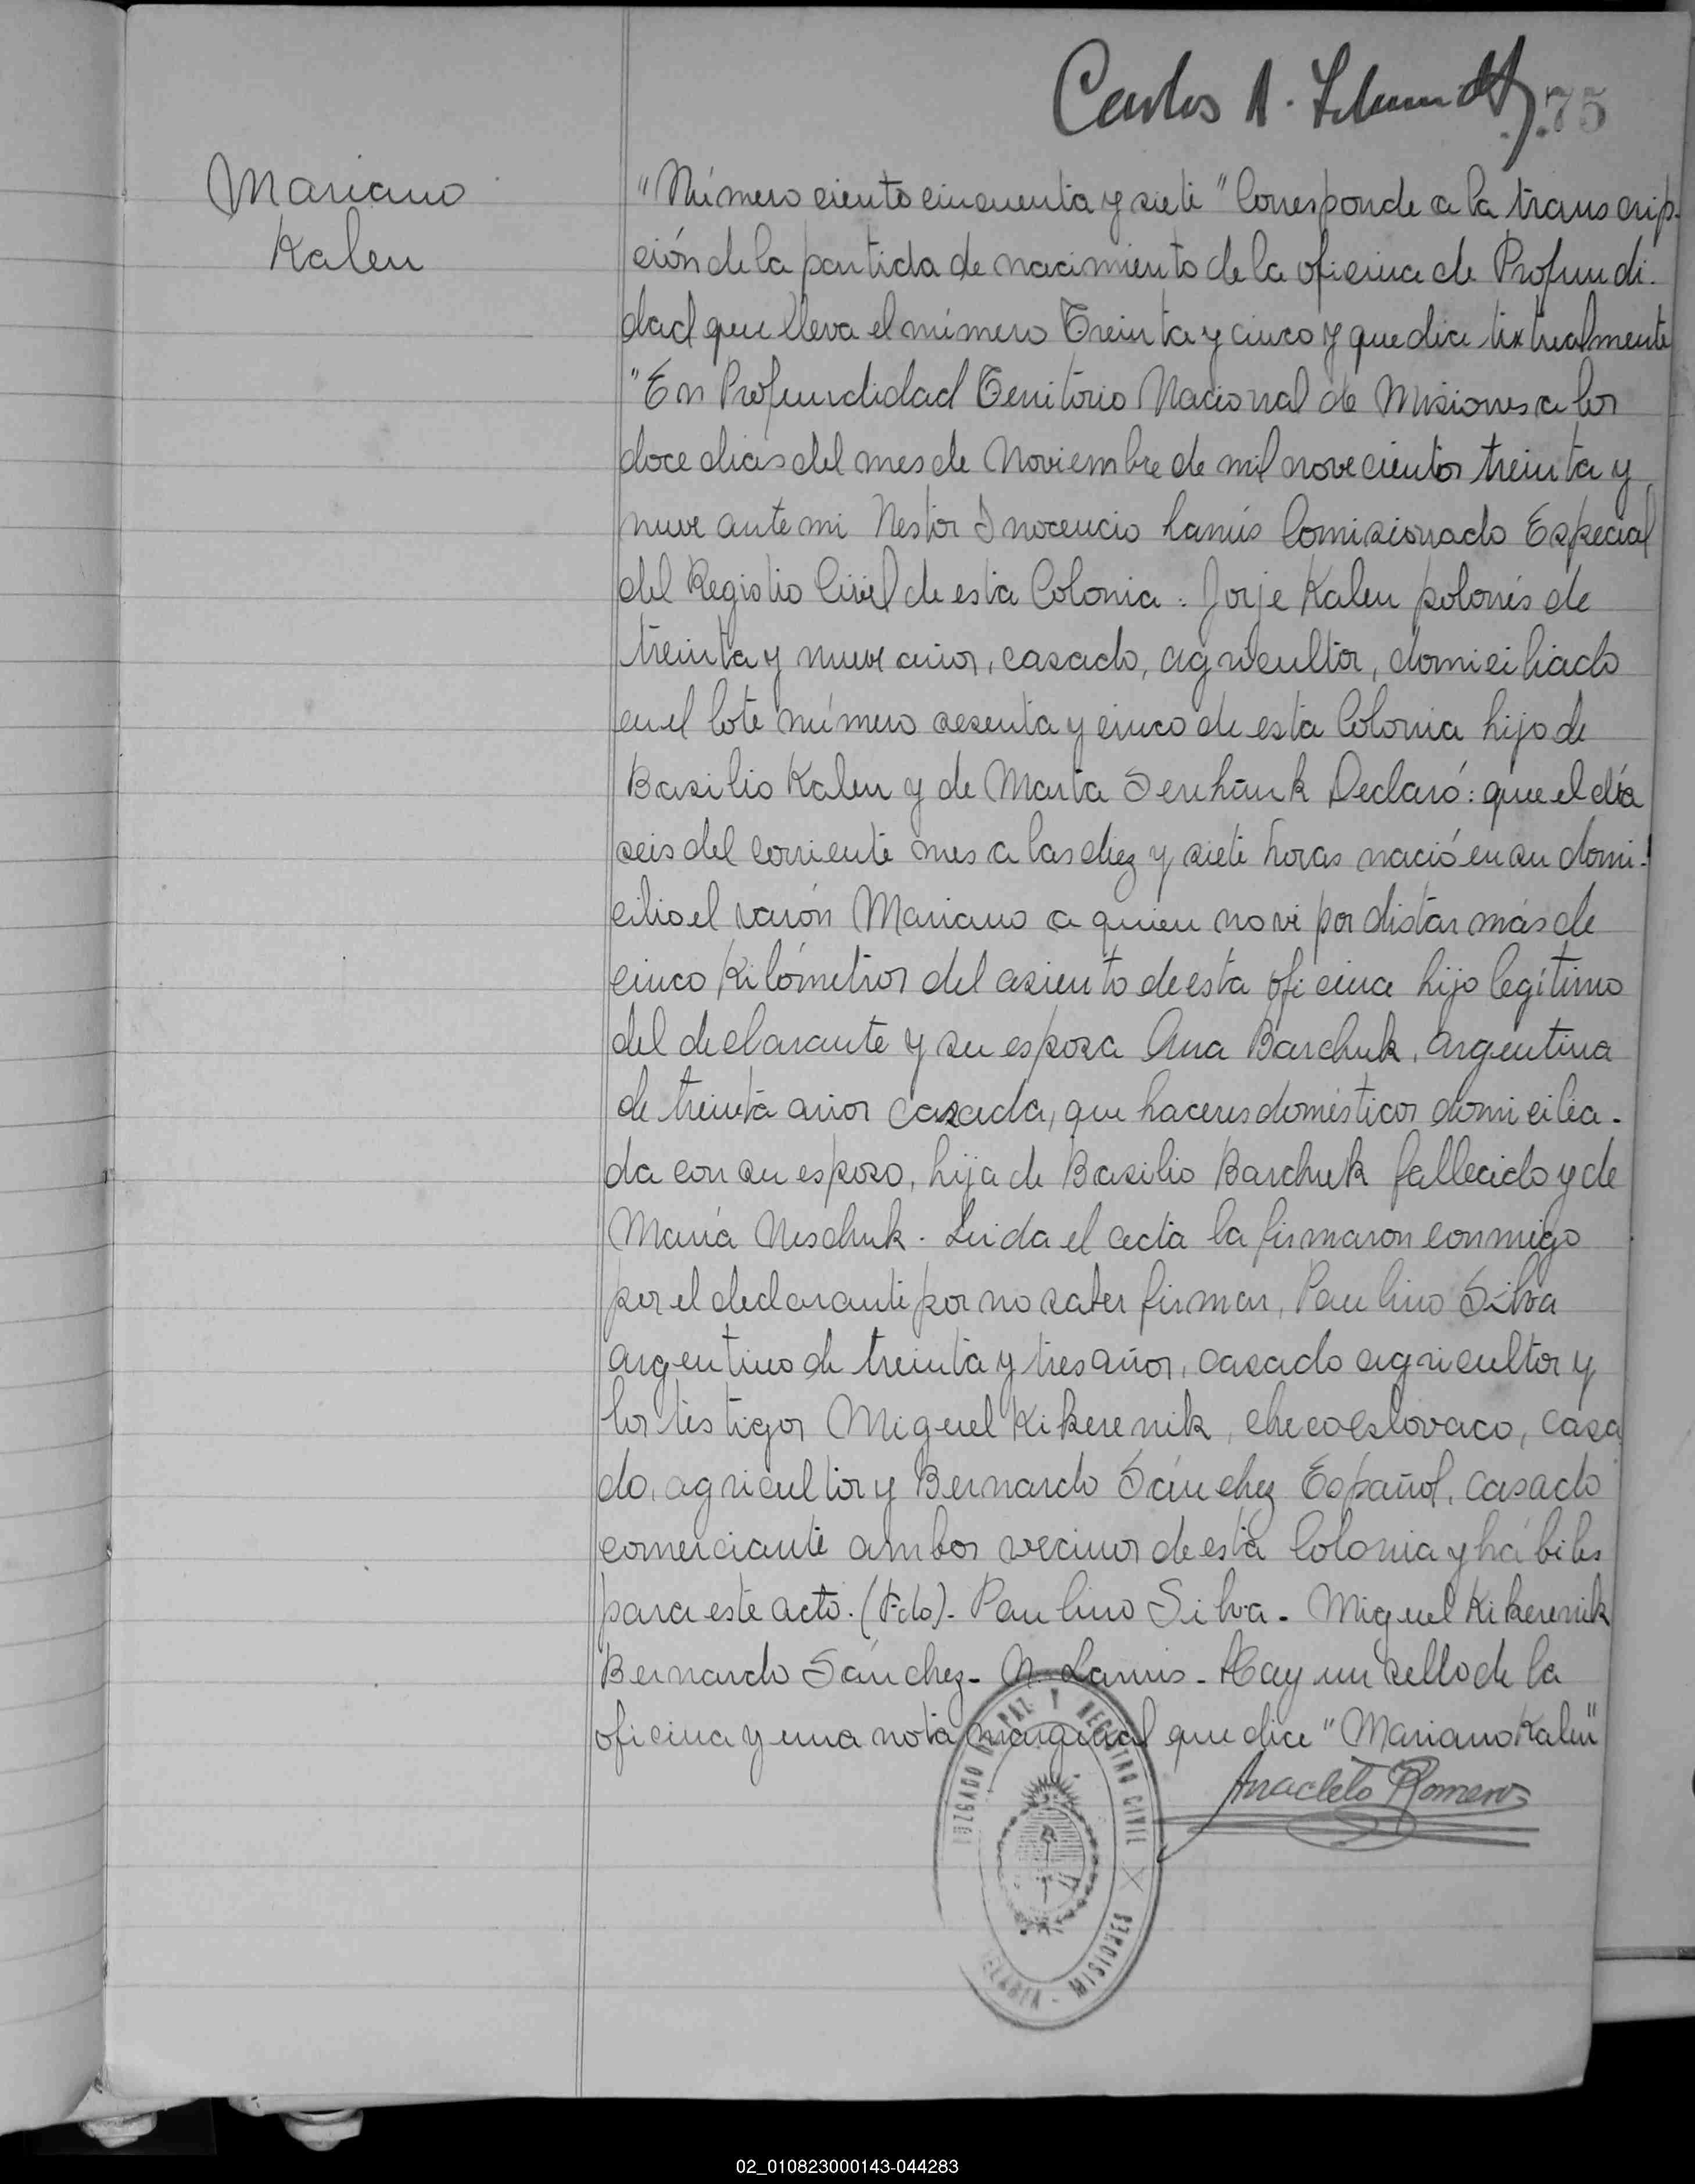 Carlos A. Schmidt
75
Mariano
Kalen
"Número ciento cincuenta y siete" Corresponde a la transcrip-
ción de la partida de nacimiento de la oficina de Profundi-
dad que lleva el número Treinta y cinco y que dice textualmente
"En Profundidad Territorio Nacional de Misiones a los
doce dias del mes de Noviembre de mil novecientos treinta y
nueve ante mi Nestor Inocencio Lanús Comisionado Especial
del Registro Civil de esta Colonia. Jorje Kalen polonés de
treinta y nueve años, casado, agricultor, domiciliado
en el lote número sesenta y cinco de esta Colonia hijo de
Basilio Kalen y de María Senhiuk Declaró: que el día
seis del corriente mes a las diez y siete horas nació en su domi-
cilio el varón Mariano a quien no vi por distar más de
cinco Kilómetros del asiento de esta oficina hijo legítimo
del declarante y su esposa Ana Barchuk, argentina
de treinta años casada, que haceres domésticos domicilia-
da con su esposo, hija de Basilio Barchuk fallecido y de
María Neschuk. Leida el acta la firmaron conmigo
por el declarante por no saber firmar, Paulino Silva
argentino de treinta y tres años, casado agricultor y
los testigos Miguel Kikerenik, checoeslovaco, casa
do, agricultor y Bernardo Sánchez Español, casado
comerciante ambos vecinos de esta Colonia y hábiles
para este acto. (Fdo). Paulino Silva - Miguel Kikerenik
Bernardo Sánchez - N. Lanus - Hay un sello de la
oficina y una nota marginal que dice "Mariano Kalen"
Anacleto Romero
JUZGADO DE PAZ Y REGISTRO CIVIL
MISIONES
02_010823000143-044283